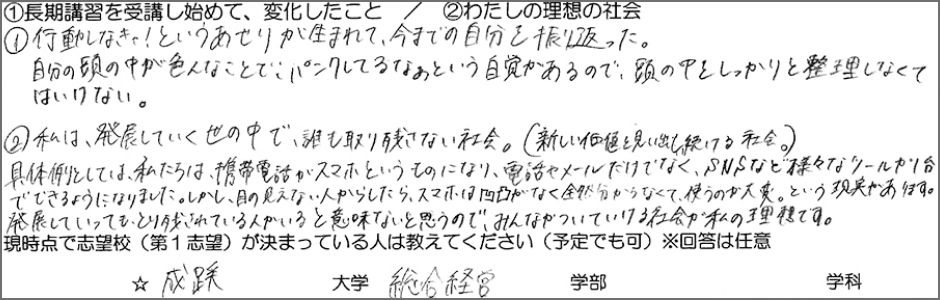 ①長期講習を受講し始めて、変化したこと ／ ②わたしの理想の社会
①行動しなきゃ！というあせりが生まれて、今までの自分を振り返った。
自分の頭の中が色んなことでパンクしてるなぁという自覚があるので、頭の中をしっかりと整理しなくて
はいけない。
②私は、発展していく世の中で、誰も取り残さない社会。(新しい価値を見い出し続ける社会。)
具体例としては、私たちは、携帯電話がスマホというものになり、電話やメールだけでなく、SNSなど様々なツールが1台
でできるようになりました。しかし、目の見えない人からしたら、スマホは凹凸がなく全然分からなくて、使うのが大変。という現実があります。
発展していってもとり残されている人がいると意味ないと思うので、みんながついていける社会が私の理想です。
現時点で志望校（第１志望）が決まっている人は教えてください（予定でも可）※回答は任意
☆ 成蹊 大学 総合経営 学部 学科